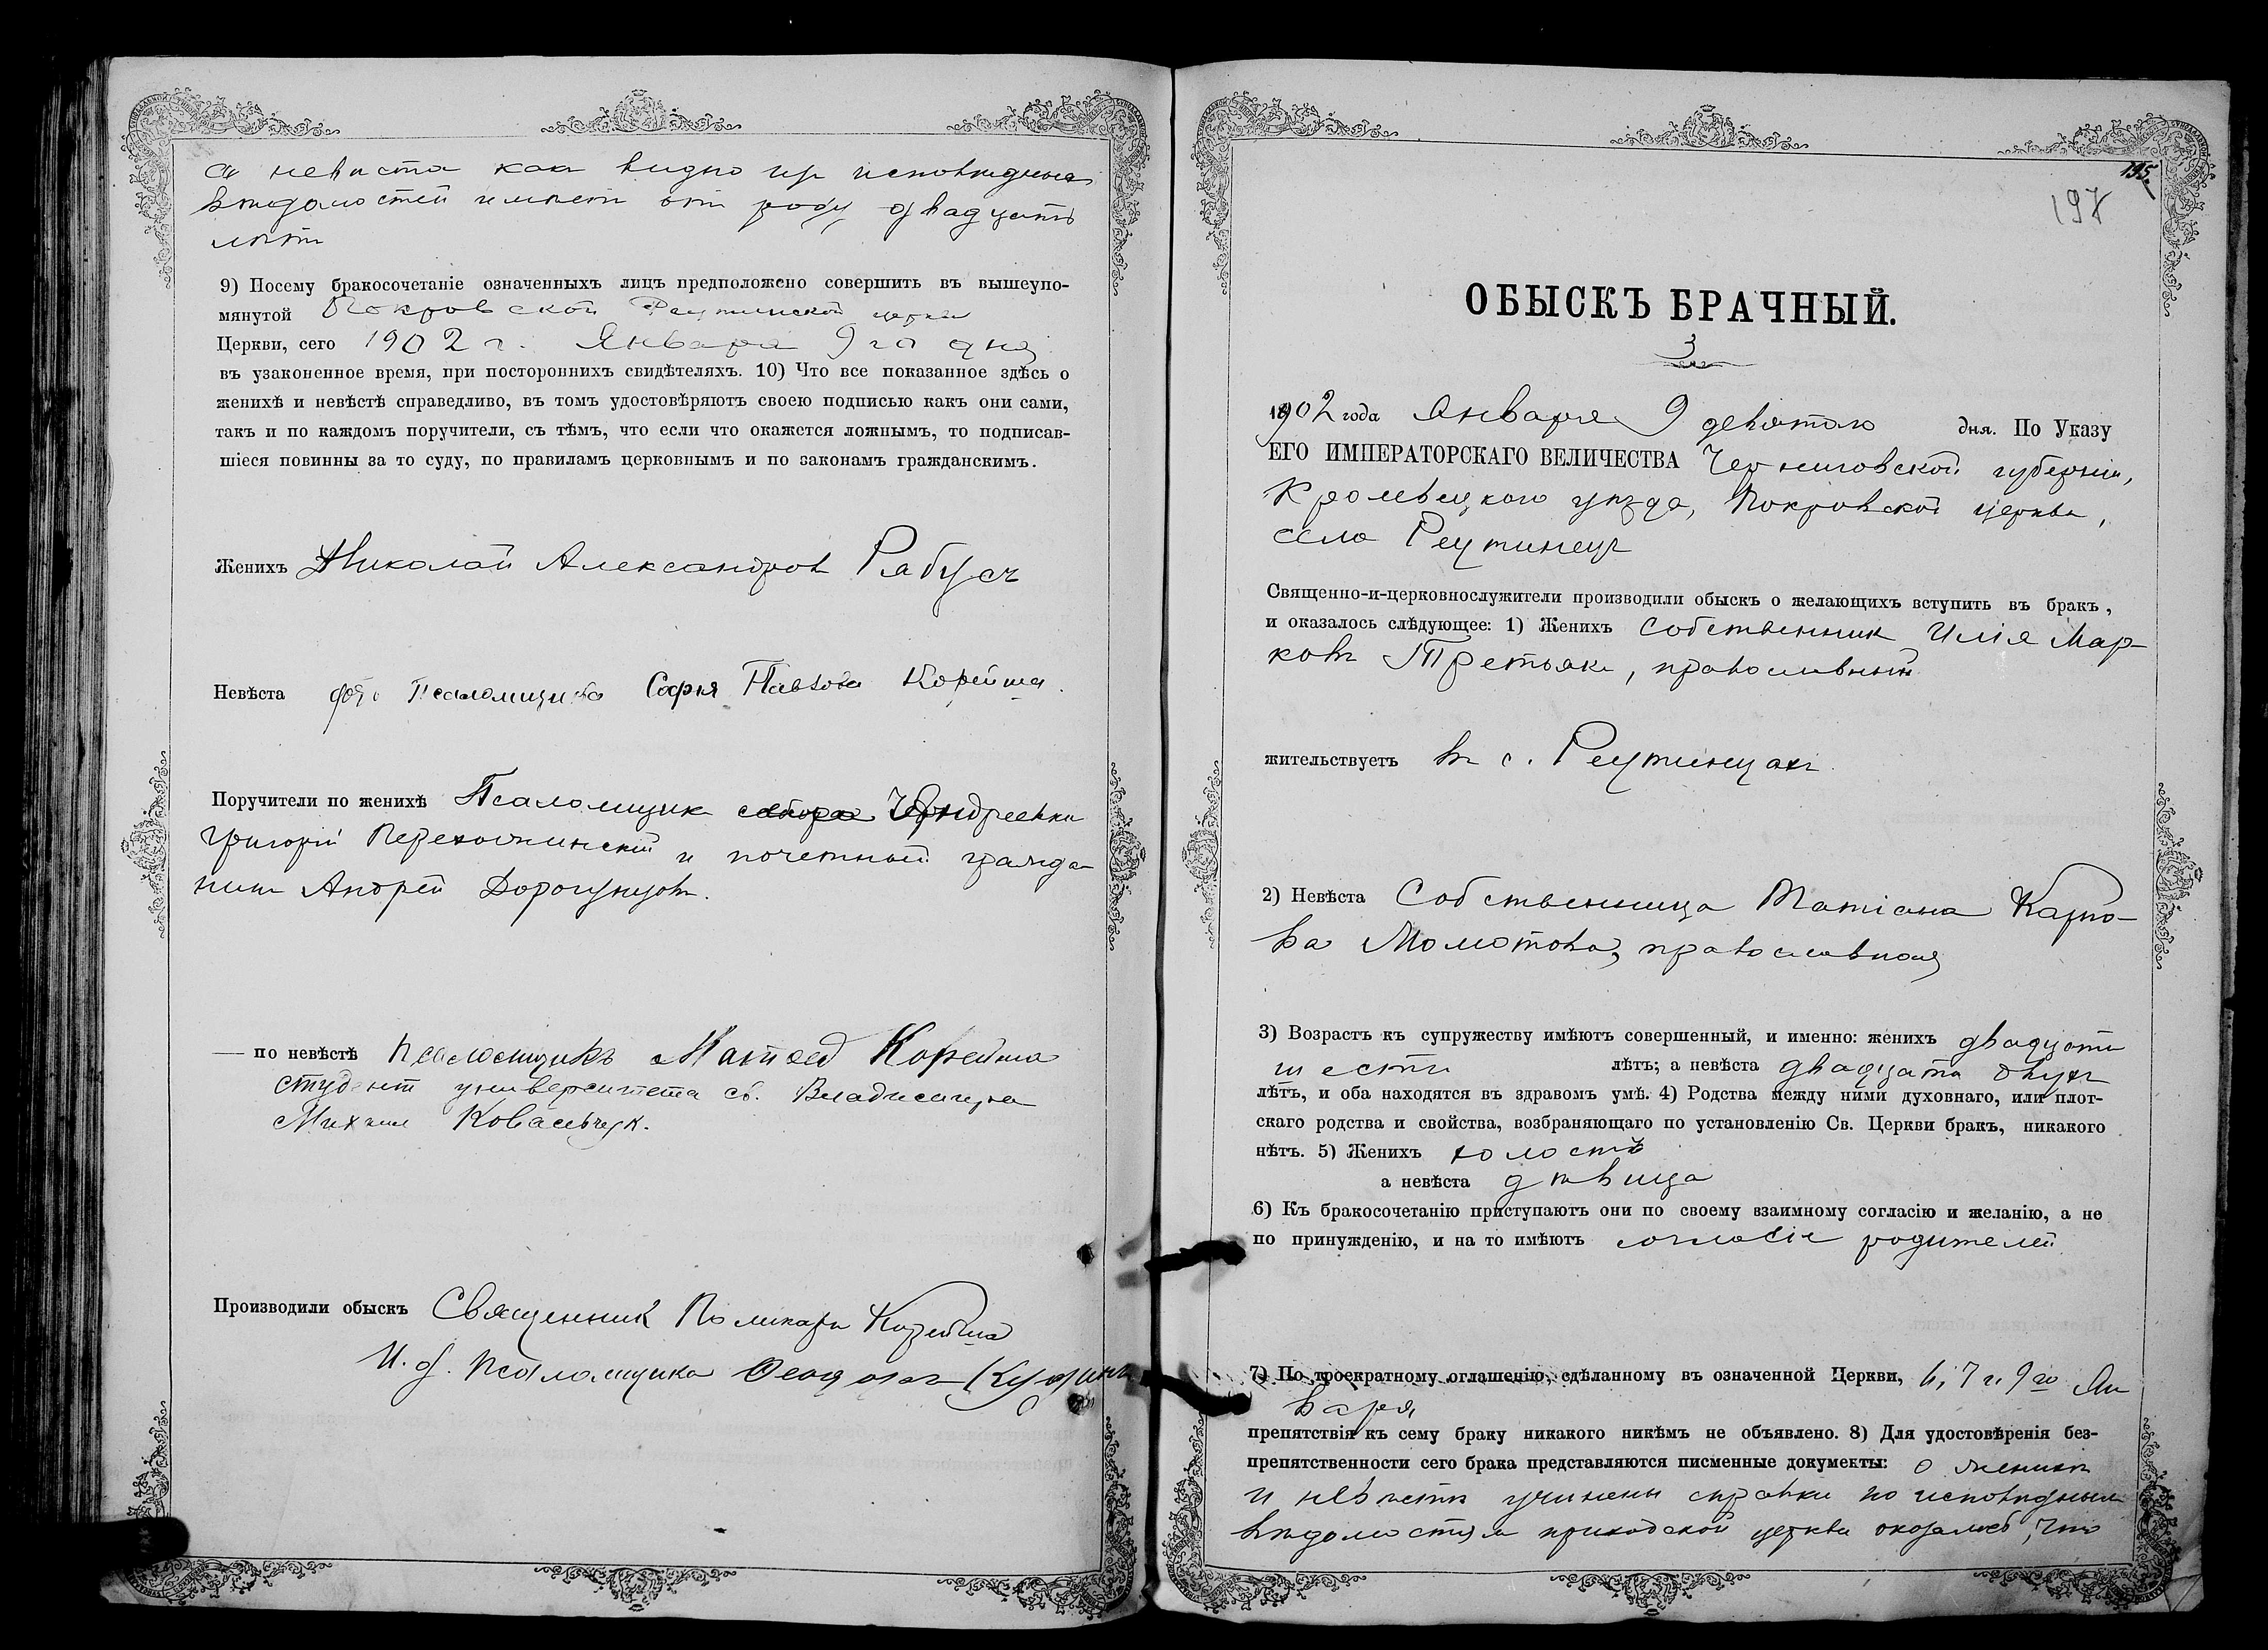 а невѣста как видно из исповѣдных
вѣдомостей имѣет от роду двадцать
лѣт
9) Посему бракосочетаніе означенныхъ лицъ предположено совершить въ вышеупо-
мянутой Покровской Реутинской церкви
Церкви, сего 1902 г. Января 9 го дня
въ узаконенное время, при постороннихъ свидѣтеляхъ. 10) Что все показанное здѣсь о
женихѣ и невѣстѣ справедливо, въ томъ удостовѣряютъ своею подписью какъ они сами,
такъ и по каждомъ поручители, съ тѣмъ, что если что окажется ложнымъ, то подписав-
шіеся повинны за то суду, по правиламъ церковнымъ и по законамъ гражданскимъ.
Женихъ Николай Александров Рябух
Невѣста Псаломщика Софья Павлова Корейша.
Поручители по женихѣ Псаломщик
Григорій и почетный гражда-
нин Андрей Дорогунцов.
— по невѣстѣ Псаломщикъ Матвей Корейша
студент университета св. Владимира
Михаил Ковальчук.
Производили обыскъ Священник Поликарп Корейша
И. д. псаломщика Феодор
195.
197
ОБЫСКЪ БРАЧНЫЙ.
3
1902 года Января 9 девятого дня. По Указу
ЕГО ИМПЕРАТОРСКАГО ВЕЛИЧЕСТВА Черниговской губерніи,
Кролевецкого уѣзда, Покровской церкви,
села Реутинец
Священно-и-церковнослужители производили обыскъ о желающихъ вступить въ бракъ,
и оказалось слѣдующее: 1) Женихъ собственник Илія Мар-
ков Третьяк, православный
жительствуетъ в с. Реутинцах
2) Невѣста Собственница Татіана Карпо-
ва Момотова, православная
3) Возрастъ къ супружеству имѣютъ совершенный, и именно: женихъ двадцати
шести лѣтъ; а невѣста двадцати двух
лѣтъ, и оба находятся въ здравомъ умѣ. 4) Родства между ними духовнаго, или плот-
скаго родства и свойства, возбраняющаго по установленію Св. Церкви бракъ, никакого
нѣтъ. 5) Женихъ холостъ
а невѣста дѣвица
6) Къ бракосочетанію приступаютъ они по своему взаимному согласію и желанію, а не
по принужденію, и на то имѣютъ согласіе родителей
7) По троекратному оглашенію, сдѣланному въ означенной Церкви, 6, 7 и 9 го Ян
варя
препятствія къ сему браку никакого никѣмъ не объявлено. 8) Для удостовѣренія без-
препятственности сего брака представляются писменные документы: о женихѣ
и невѣстѣ учинены справки по исповѣдным
вѣдомостям приходской церкви оказалось, что